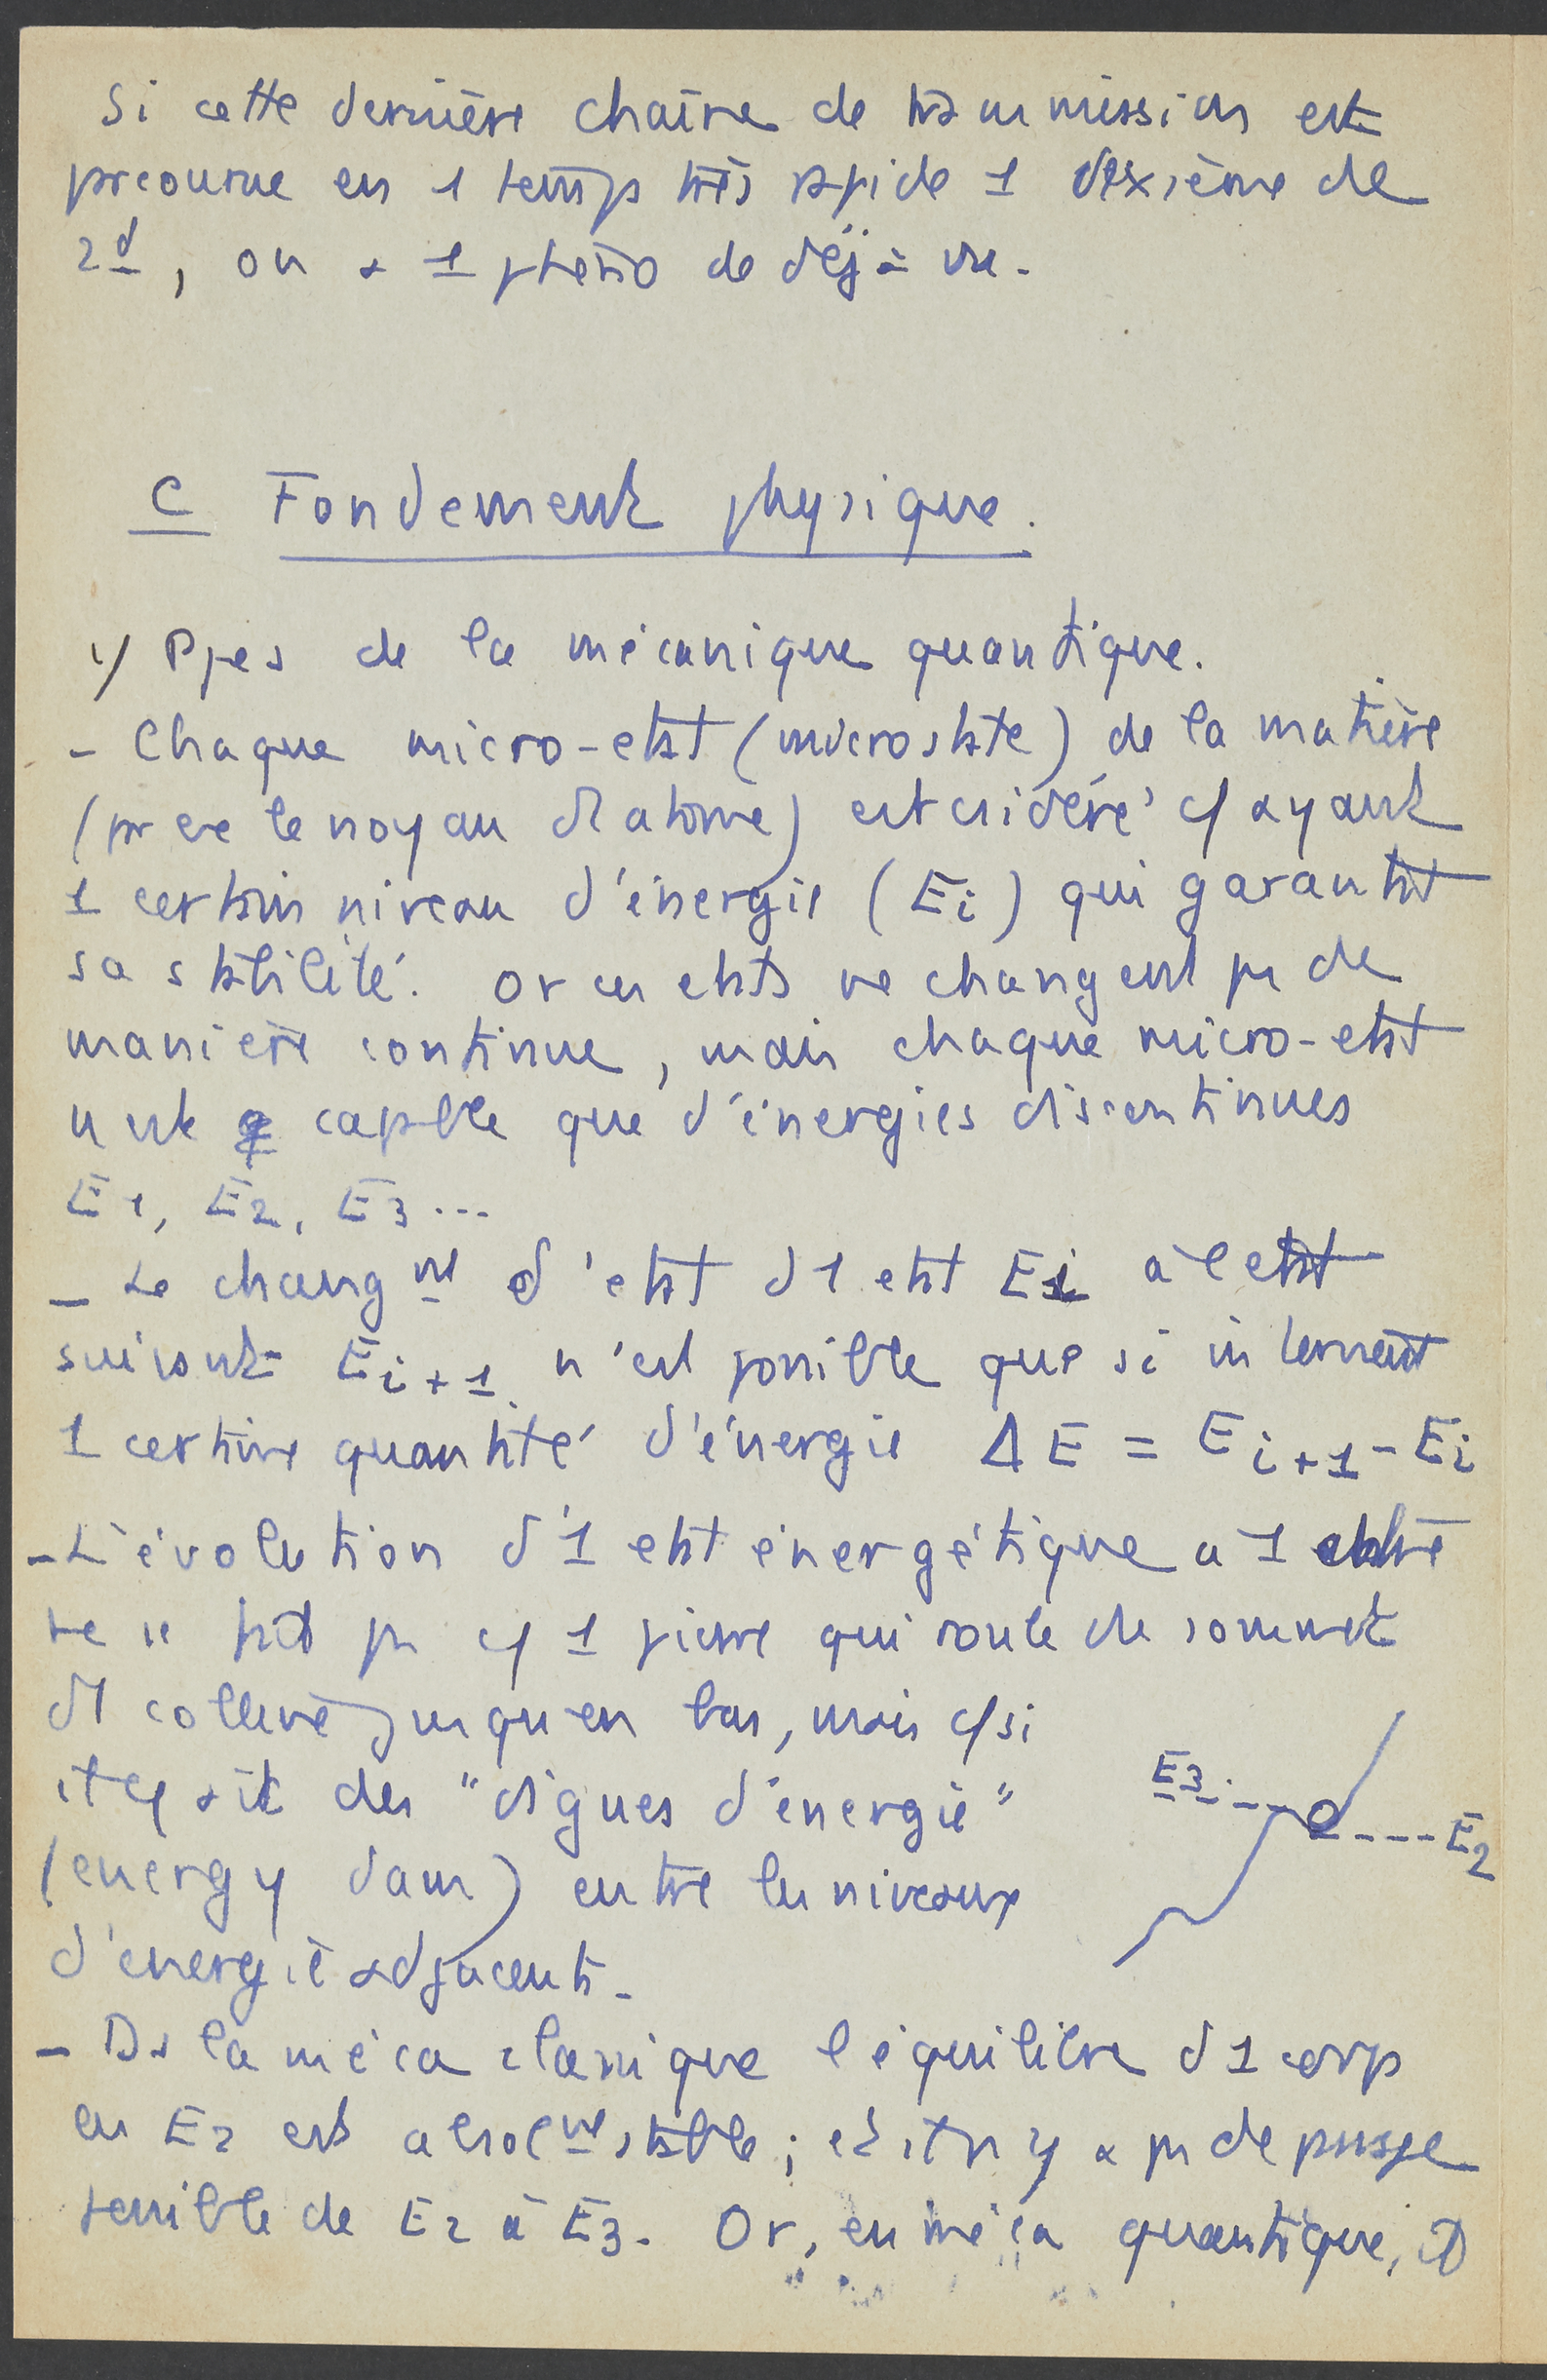 Si cette dernière chaîne de transmission est
parcourue en 1 temps très rapide 1 dixième de
2d, on a 1 phéno de déjà vu.
C Fondement physique.
1/ Ppes de la mécanique quantique.
- Chaque micro-etat (microstate) de la matière
(pr ex le noyau d1 atome) est csidéré c/ ayant
1 certain niveau d'énergie (Ei) qui garantit
sa stabilité. Or ces etats ne changent pas de
manière continue, mais chaque micro-etat
capable que d'énergies discontinues
E1, E2, E3 ...
- Le changmt d'etat d1 etat Ei à l etat
suivant Ei+1 n'est possible que si intervient
1 certaine quantité d'énergie ΔE = Ei+1 - Ei
- L'évolution d'1 etat énergétique à 1 autre
ne se fait pas c/ 1 pierre qui roule du sommet
d1 colline jusqu en bas, mais c/ si
il y avait des "digues d'énergie"
(energy dam) entre les niveaux
d'énergie adjacents.
E3
E2
- Ds la méca classique l équilibre d 1 corps
en E2 est absolmt stable; et il n y a pas de passage
sensible de E2 à E3. Or, en méca quantique, il